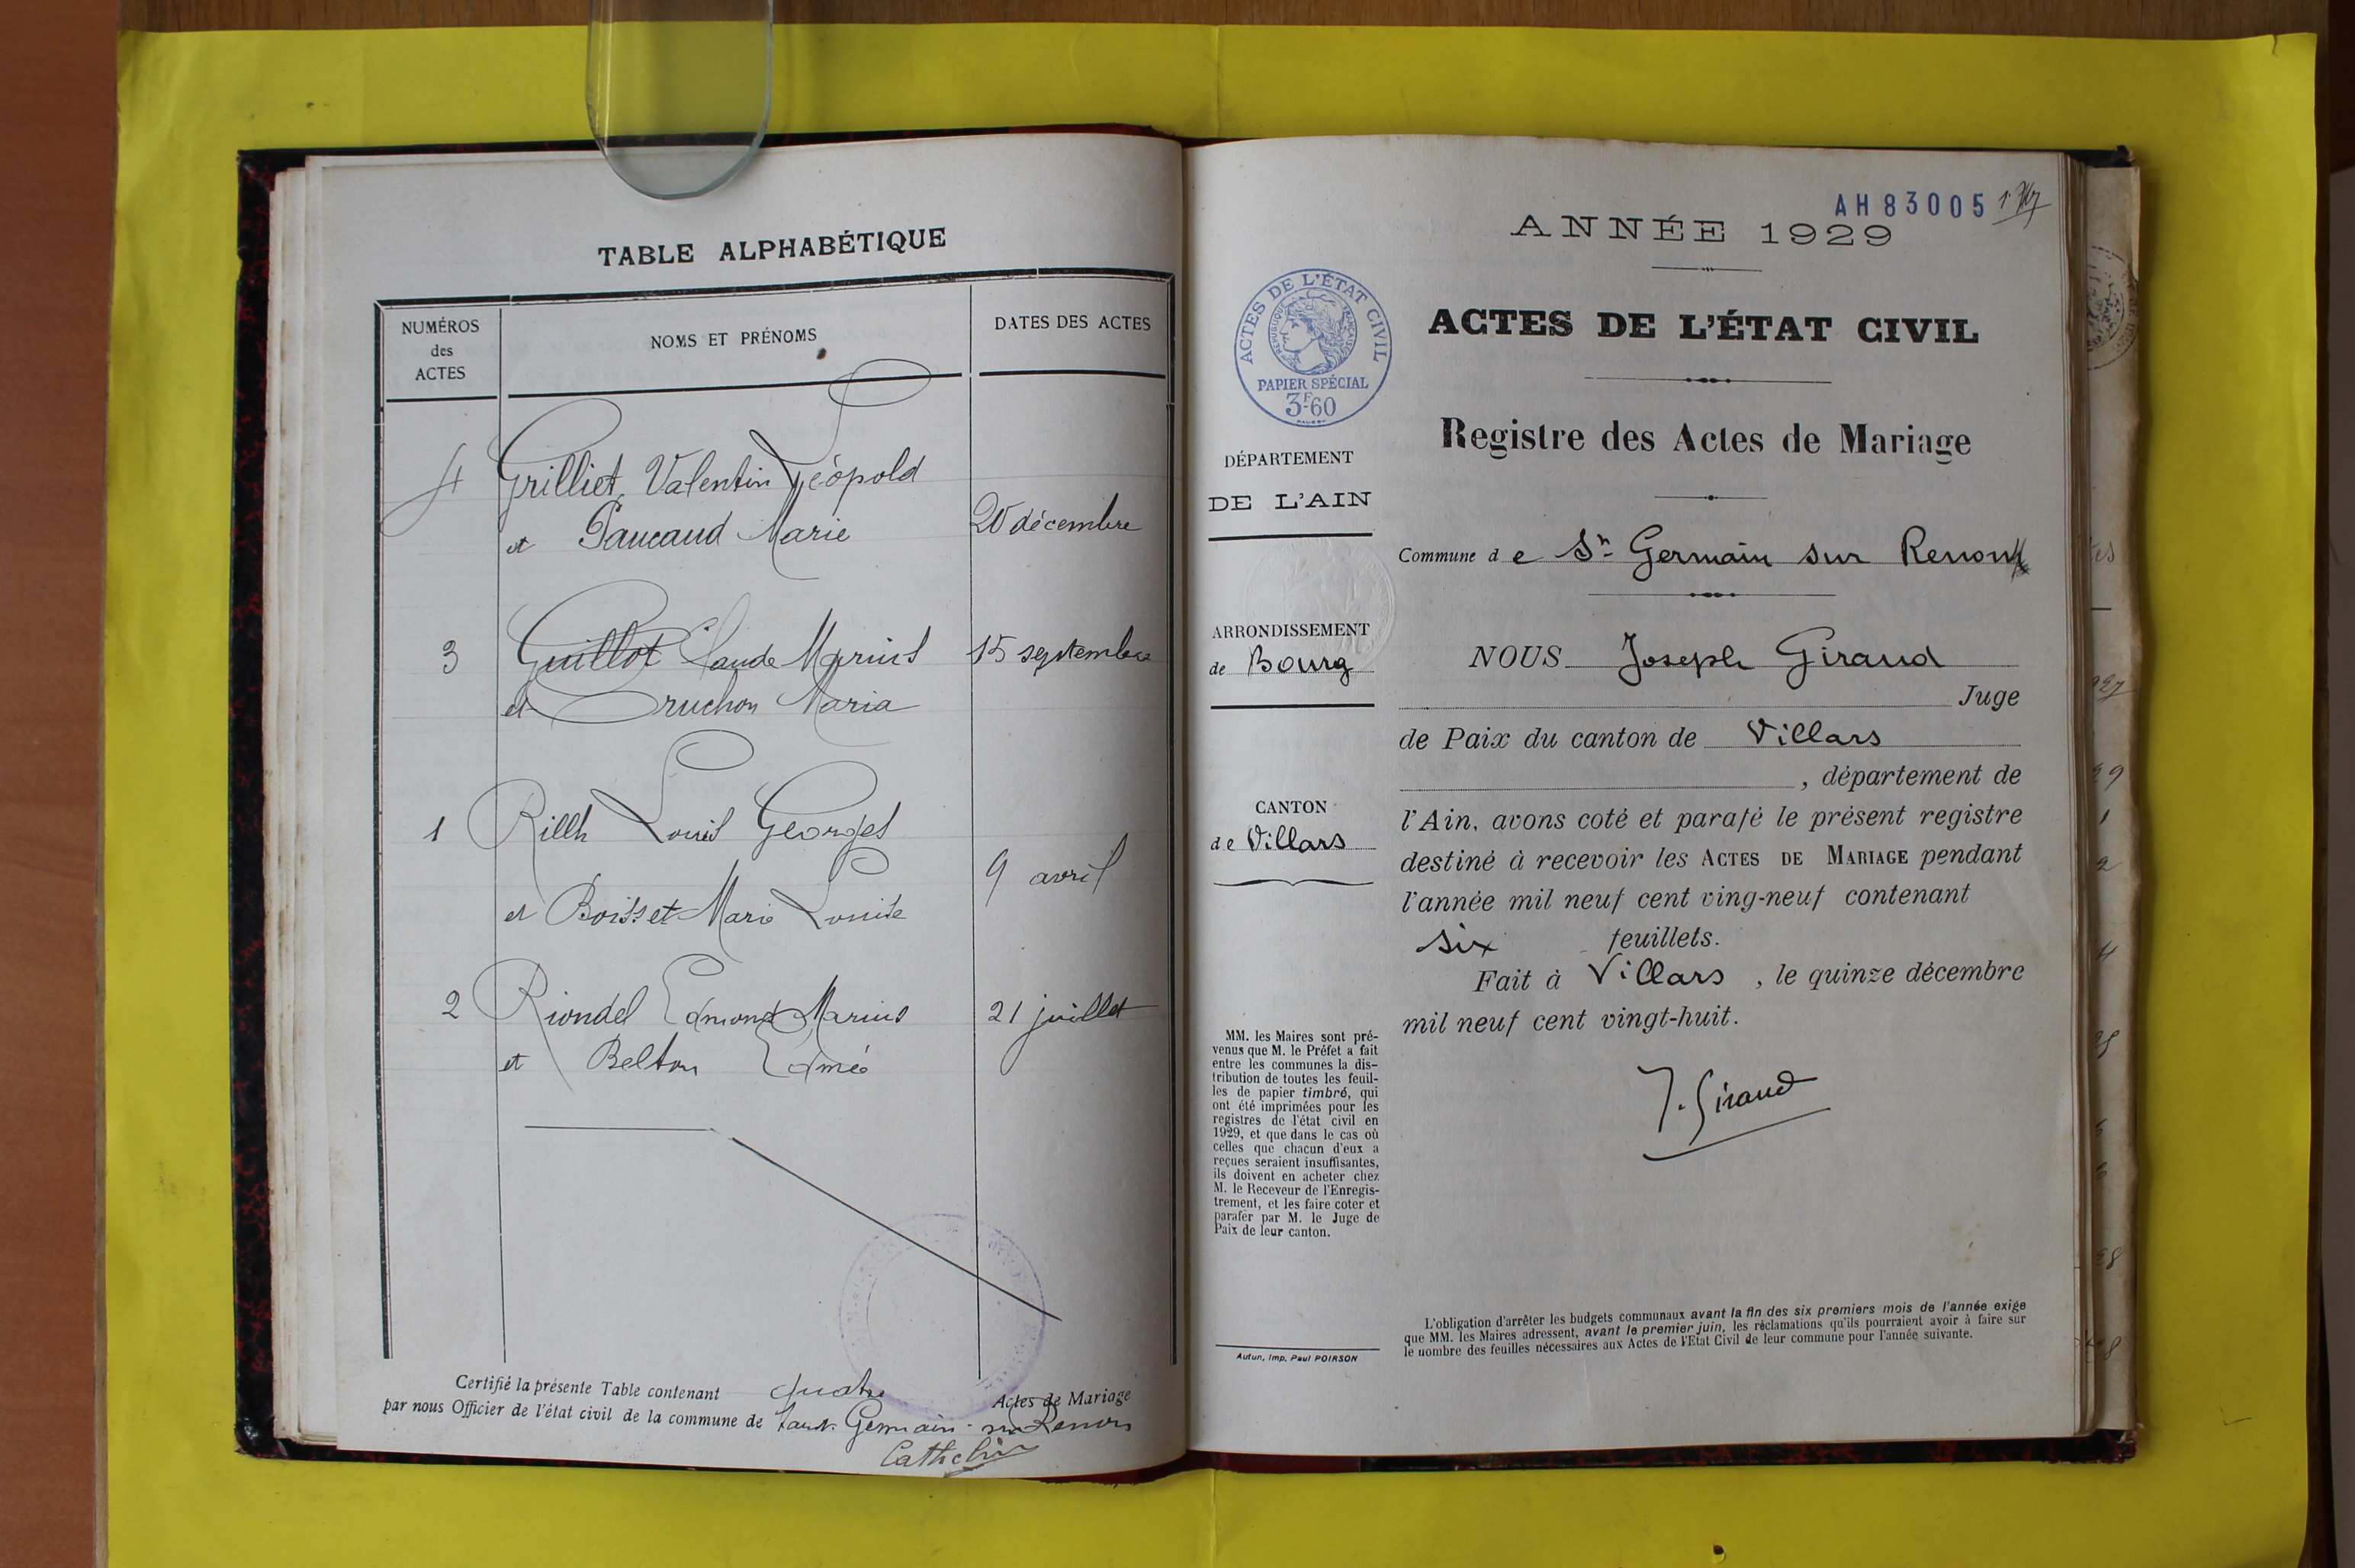 TABLE ALPHABÉTIQUE
NUMÉROS
des
ACTES
NOMS ET PRÉNOMS
DATES DES ACTES
4 Grilliet Valentin Léopold
et Paucaud Marie 20 décembre
3 Guillot Claude Marius 15 septembre
et Druchon Maria
1 Rillh Louis Georges
9 avril
et Boisset Marie Louise
2 Riondel Edmond Marius 21 juillet
et Belton Edmée
Certifié la présente Table contenant quatre Actes de Mariage
par nous Officier de l'état civil de la commune de Saint-Germain-sur-Renon
Cathelin
AH 83005
ANNÉE 1929
ACTES DE L'ÉTAT CIVIL
RÉPUBLIQUE FRANÇAISE
PAPIER SPÉCIAL
3F60
ACTES DE L'ÉTAT CIVIL
Registre des Actes de Mariage
DÉPARTEMENT
DE L'AIN
Commune de St Germain sur Renon
ARRONDISSEMENT
de Bourg
CANTON
de Villars
NOUS Joseph Giraud
Juge
de Paix du canton de Villars
, département de
l'Ain, avons coté et parafé le présent registre
destiné à recevoir les ACTES DE MARIAGE pendant
l'année mil neuf cent ving-neuf contenant
six feuillets.
Fait à Villars, le quinze décembre
mil neuf cent vingt-huit.
J. Giraud
MM. les Maires sont pré-
venus que M. le Préfet a fait
entre les communes la dis-
tribution de toutes les feuil-
les de papier timbré, qui
ont été imprimées pour les
registres de l'état civil en
1929, et que dans le cas où
celles que chacun d'eux a
reçues seraient insuffisantes,
ils doivent en acheter chez
M. le Receveur de l'Enregis-
trement, et les faire coter et
parafer par M. le Juge de
Paix de leur canton.
Autun, Imp. Paul POIRSON
L'obligation d'arrêter les budgets communaux avant la fin des six premiers mois de l'année exige
que MM. les Maires adressent, avant le premier juin, les réclamations qu'ils pourraient avoir à faire sur
le nombre des feuilles nécessaires aux Actes de l'Etat Civil de leur commune pour l'année suivante.